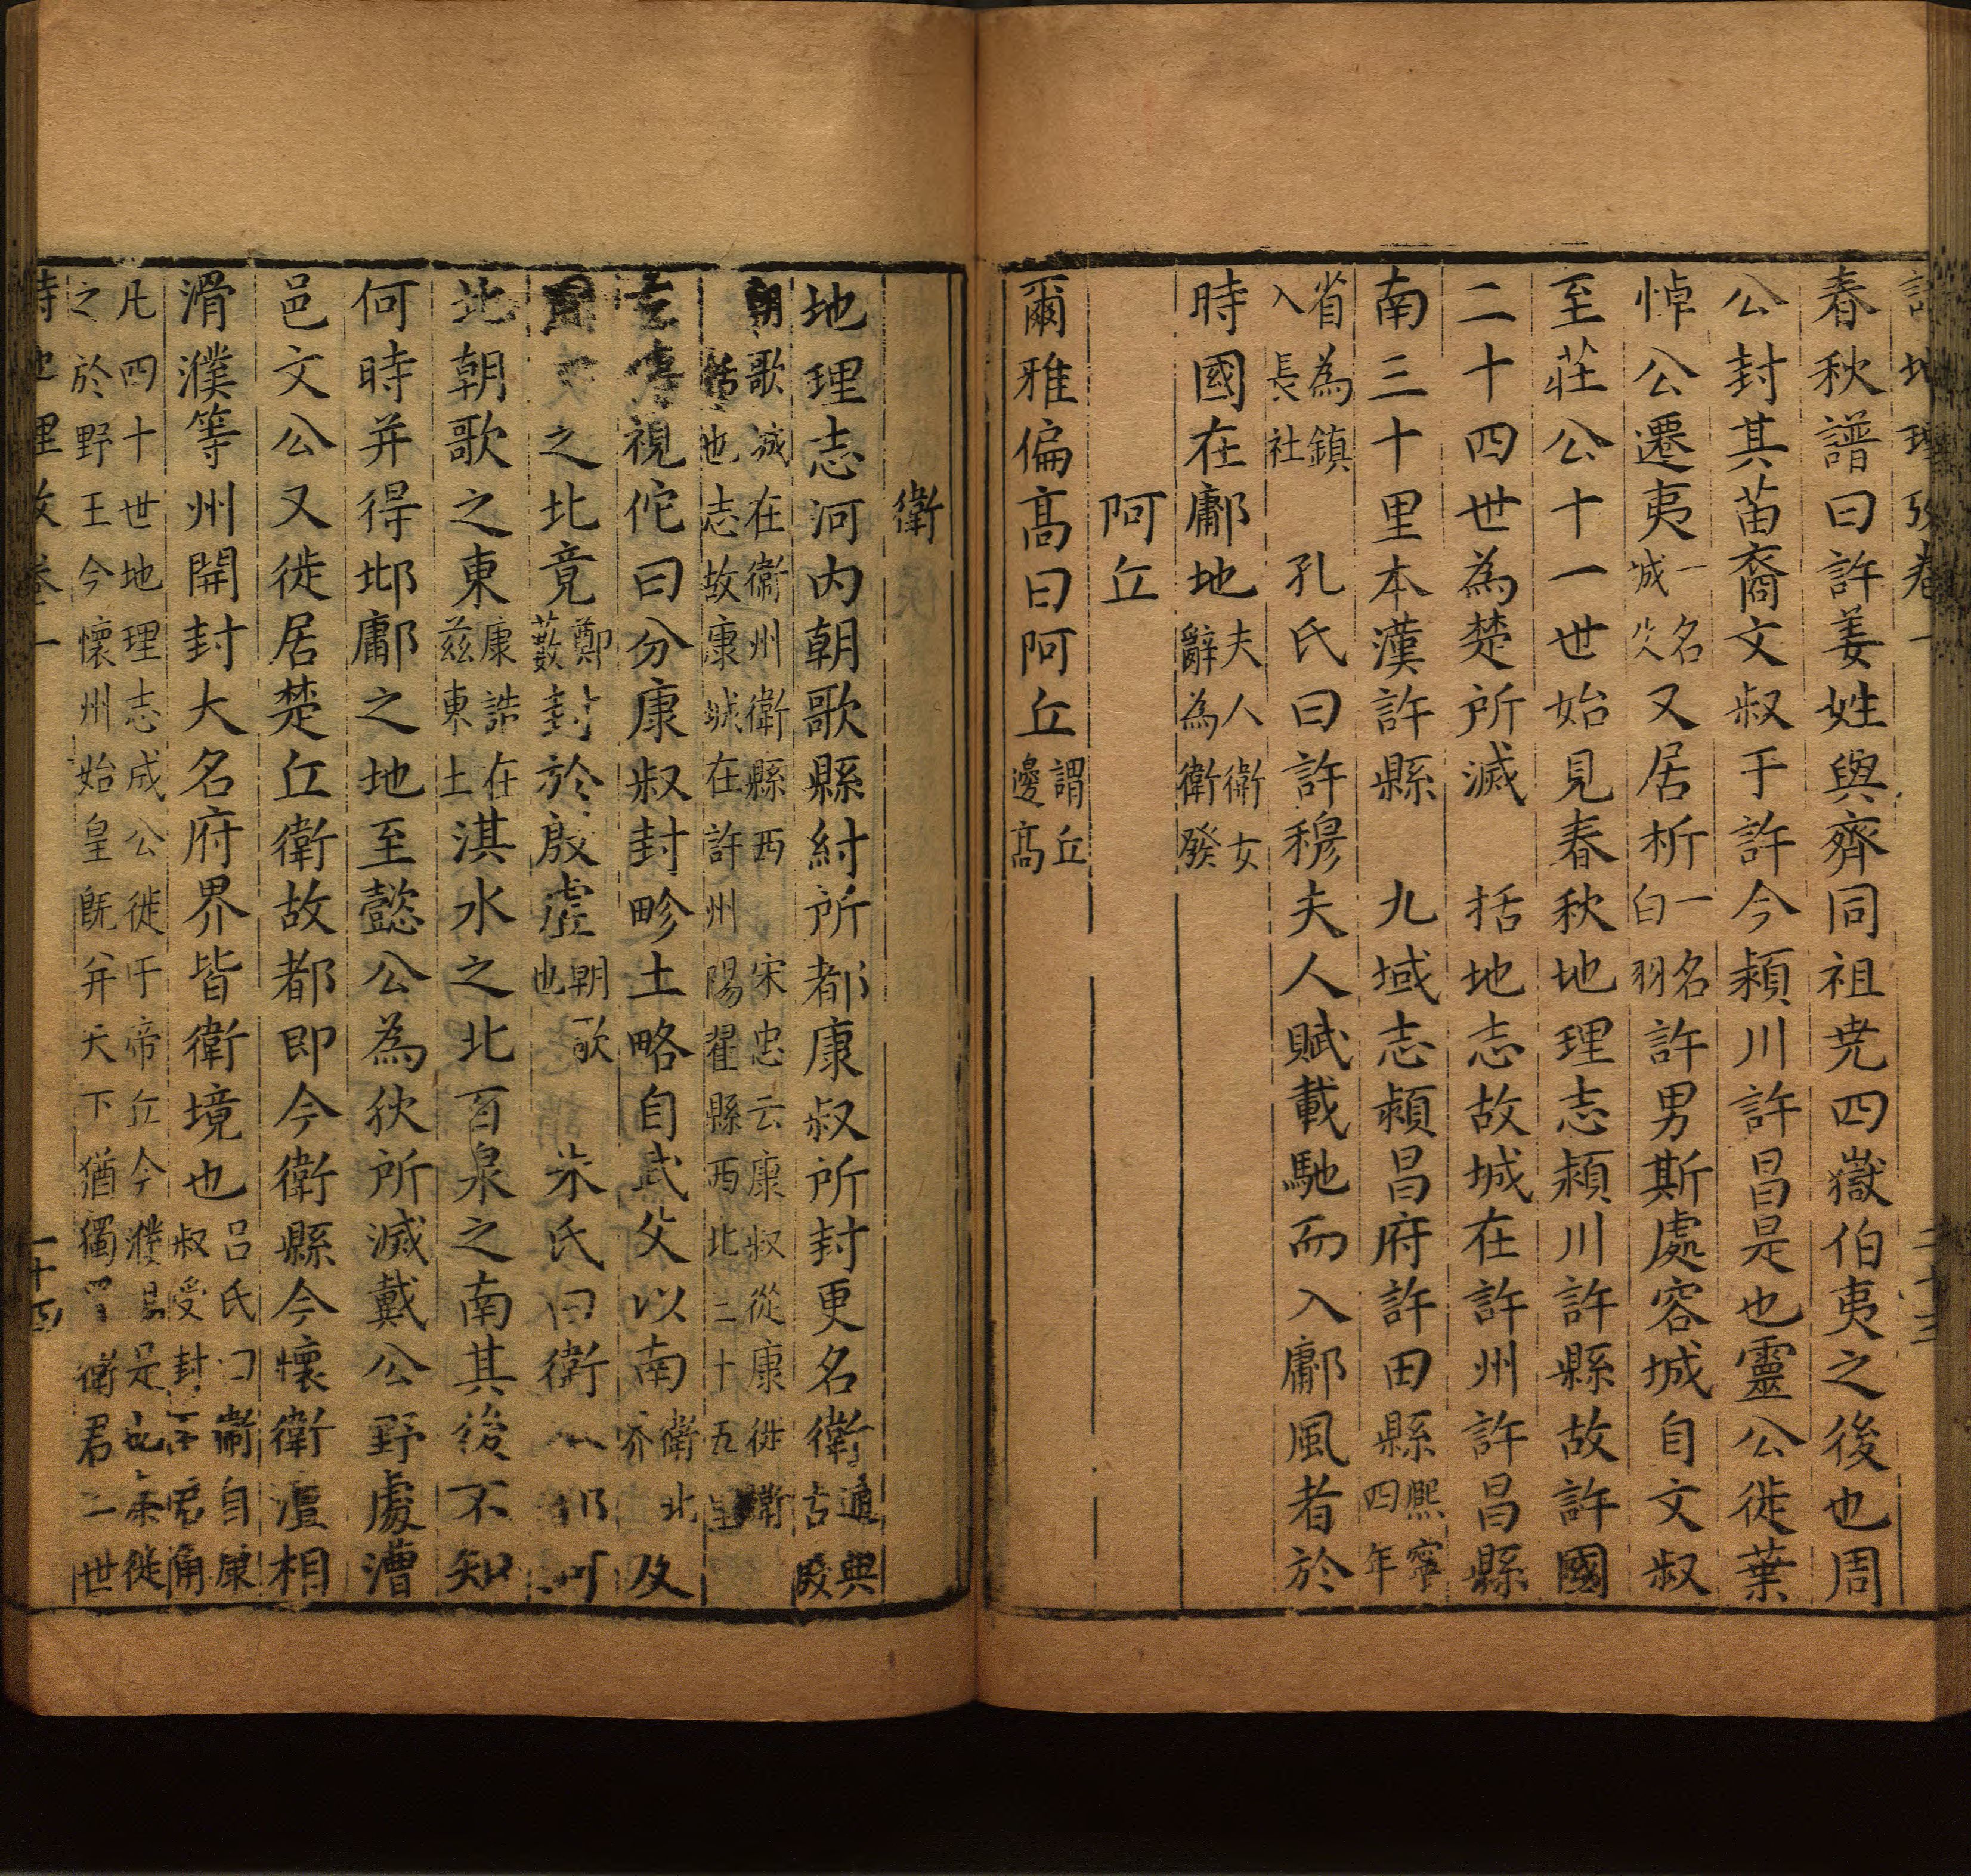 詩地理攷卷一 二十三
春秋譜曰許姜姓與齊同祖尭四嶽伯夷之後也周
公封其苗裔文叔于許今潁川許昌是也靈公徙葉
悼公遷夷一名城父又居析一名白羽許男斯處容城自文叔
至莊公十一世始見春秋地理志潁川許縣故許國
二十四世為楚所滅 括地志故城在許州許昌縣
南三十里本漢許縣 九域志潁昌府許田縣熙寧四年
省為鎮入長社 孔氏曰許穆夫人賦載馳而入鄘風者於
時國在鄘地夫人衛女辭為衛發
阿丘
爾雅偏髙曰阿丘謂丘邊髙
衛
地理志河内朝歌縣紂所都康叔所封更名衛通典古殷
朝歌城在衛州衛縣西 宋忠云康叔從康徙衛
括也志故康城在許州陽翟縣西北三十五里
左傳視佗曰分康叔封畛土略自武父以南衛北界及
之北竟鄭藪封於殷虛朝歌也 朱氏曰衛河
北朝歌之東康誥在兹東土淇水之北百泉之南其後不知
何時并得邶鄘之地至懿公為狄所滅戴公野處漕
邑文公又徙居楚丘衛故都即今衛縣今懷衛澶相
滑濮等州開封大名府界皆衛境也呂氏曰衛自康叔受封至君角
凡四十世地理志成公徙于帝丘今濮昜是也秦徙
之於野王今懷州始皇旣并天下猶獨置衛君二世
詩地理攷卷一 二十四